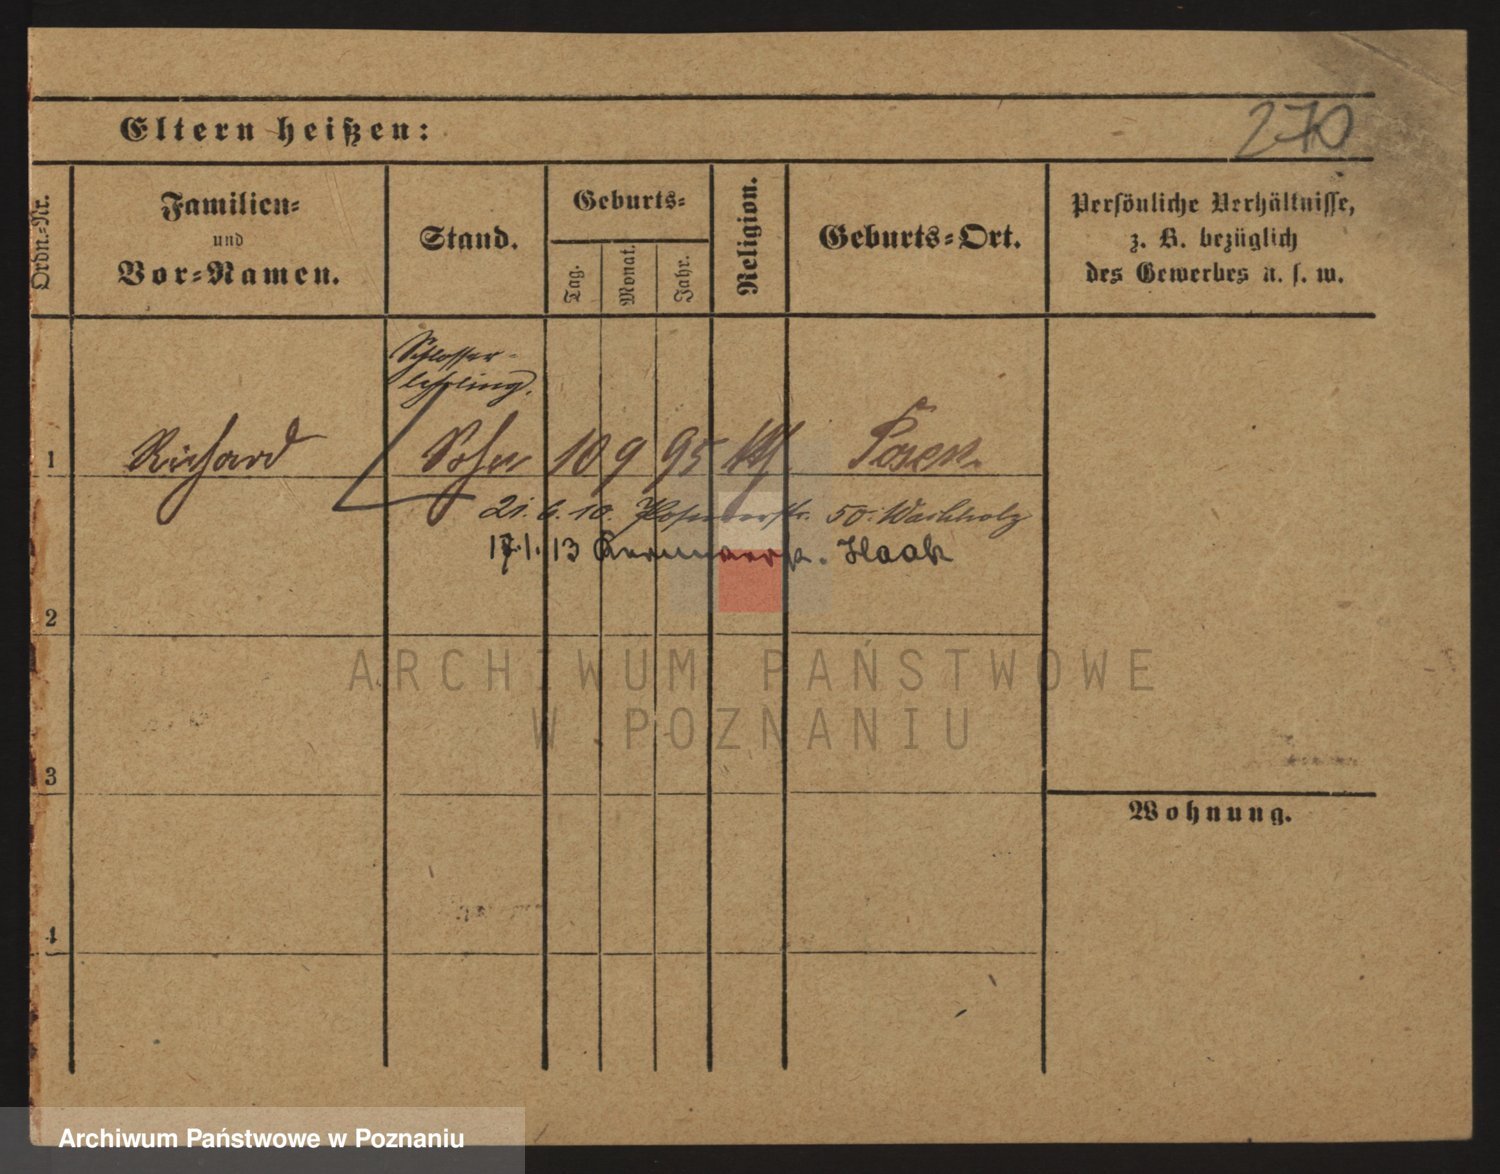 Eltern heißen:
270
Ordn.-Nr.
Familien-
und
Vor-Namen.
Stand.
Geburts-
Tag.
Monat.
Jahr.
Religion.
Geburts-Ort.
Persönliche Verhältnisse,
z. B. bezüglich
des Gewerbes u. s. w.
Schlosser-
lehrling.
1 Richard Sohn 10 9 95 Posen.
21. 6. 10. 50. Wachholz
17.1.13 Haak
2
ARCHIWUM PAŃSTWOWE
W POZNANIU
3
Wohnung.
4
Archiwum Państwowe w Poznaniu